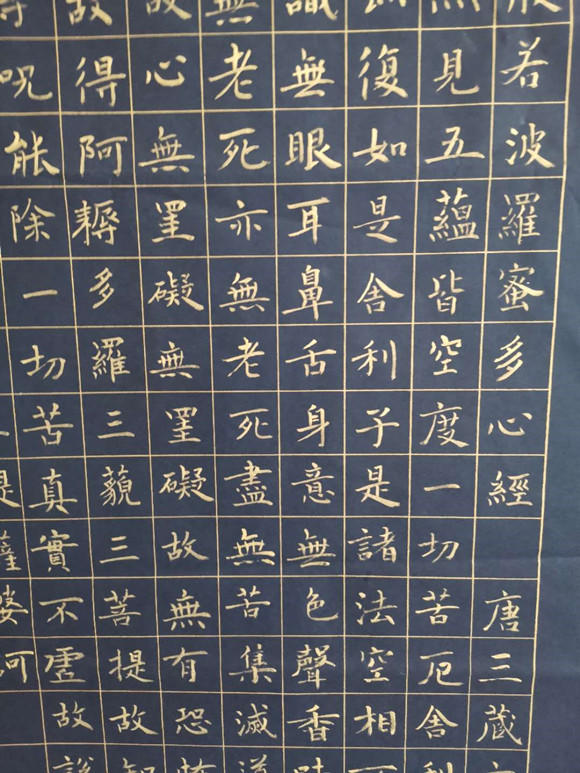 般若波羅蜜多心經 唐三藏
照見五蘊皆空度一切苦厄舍利
復如是舍利子是諸法空相不
識無眼耳鼻舌身意無色聲香味
無老死亦無老死盡無苦集滅道
故心無罣礙無罣礙故無有恐怖
故得阿耨多羅三藐三菩提故知
呪能除一切苦真實不虛故說
薩婆訶